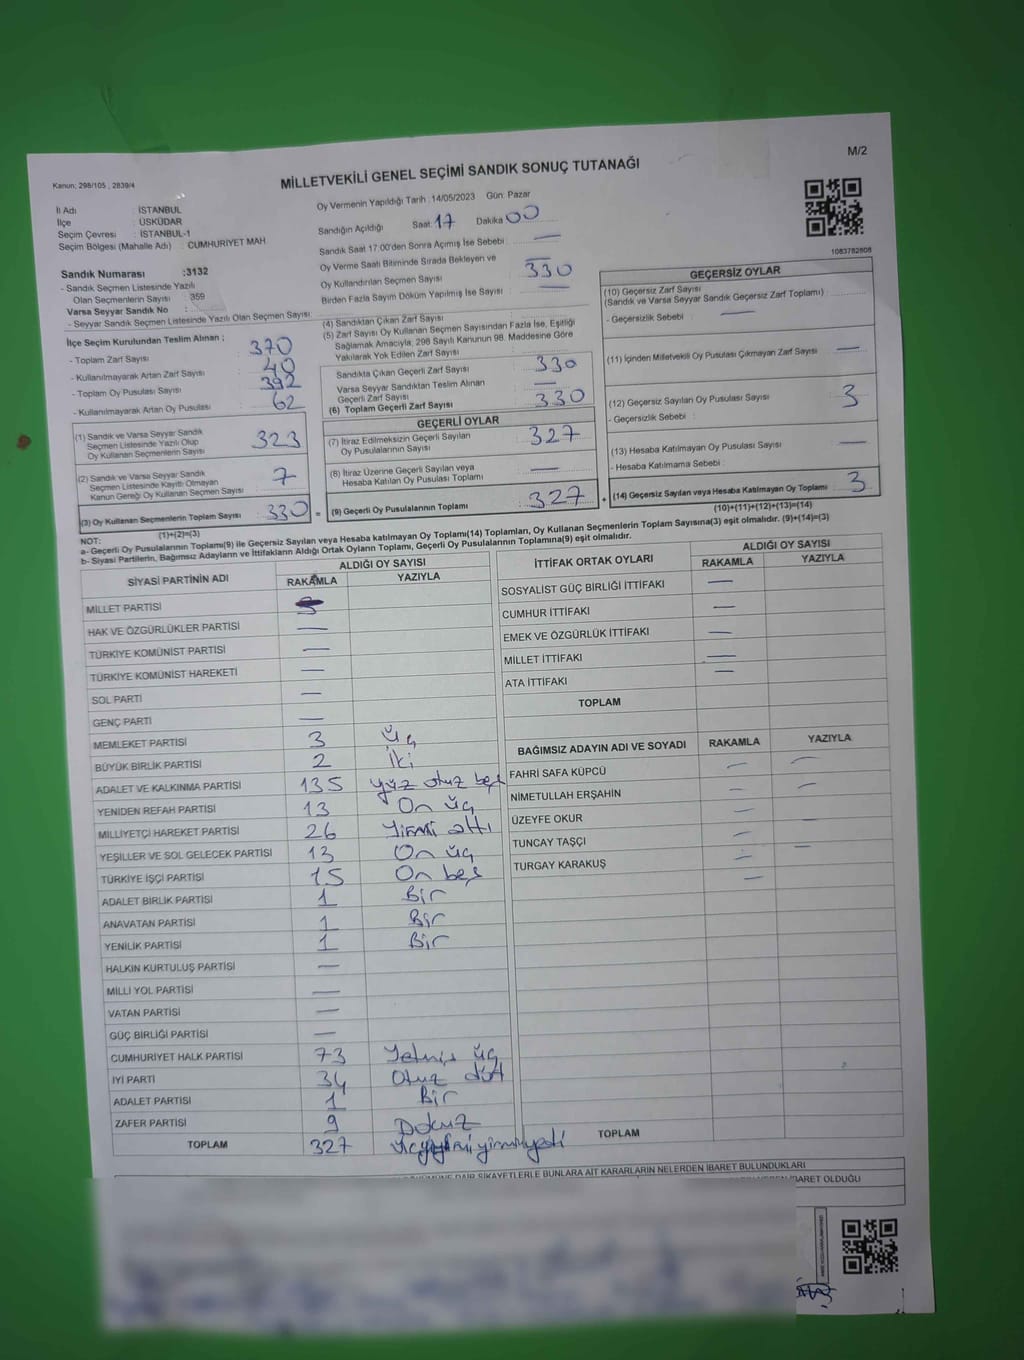 M/2
Kanun: 298/105 , 2839/4
MİLLETVEKİLİ GENEL SEÇİMİ SANDIK SONUÇ TUTANAĞI
İl Adı : İSTANBUL
İlçe : ÜSKÜDAR
Seçim Çevresi : İSTANBUL-1
Seçim Bölgesi (Mahalle Adı) : CUMHURİYET MAH
Sandık Numarası :3132
- Sandık Seçmen Listesinde Yazılı
Olan Seçmenlerin Sayısı : 359
Varsa Seyyar Sandık No :
- Seyyar Sandık Seçmen Listesinde Yazılı Olan Seçmen Sayısı
Oy Vermenin Yapıldığı Tarih : 14/05/2023 Gün: Pazar
Sandığın Açıldığı Saat: 17 Dakika 00
Sandık Saat 17:00'den Sonra Açımış İse Sebebi : —
Oy Verme Saati Bitiminde Sırada Bekleyen ve
Oy Kullandırılan Seçmen Sayısı : —
Birden Fazla Sayım Döküm Yapılmış İse Sayısı : —
1083782808
İlçe Seçim Kurulundan Teslim Alınan ;
- Toplam Zarf Sayısı : 370
- Kullanılmayarak Artan Zarf Sayısı : 40
- Toplam Oy Pusulası Sayısı : 392
- Kullanılmayarak Artan Oy Pusulası : 62
(1) Sandık ve Varsa Seyyar Sandık
Seçmen Listesinde Yazılı Olup
Oy Kullanan Seçmenlerin Sayısı : 323
(2) Sandık ve Varsa Seyyar Sandık
Seçmen Listesinde Kayıtlı Olmayan
Kanun Gereği Oy Kullanan Seçmen Sayısı : 7
(3) Oy Kullanan Seçmenlerin Toplam Sayısı : 330
(1)+(2)=(3)
(4) Sandıktan Çıkan Zarf Sayısı : 330
(5) Zarf Sayısı Oy Kullanan Seçmen Sayısından Fazla İse, Eşitliği
Sağlamak Amacıyla, 298 Sayılı Kanunun 98. Maddesine Göre
Yakılarak Yok Edilen Zarf Sayısı : —
Sandıkta Çıkan Geçerli Zarf Sayısı : 330
Varsa Seyyar Sandıktan Teslim Alınan
Geçerli Zarf Sayısı : —
(6) Toplam Geçerli Zarf Sayısı : 330
GEÇERLİ OYLAR
(7) İtiraz Edilmeksizin Geçerli Sayılan
Oy Pusulalarının Sayısı : 327
(8) İtiraz Üzerine Geçerli Sayılan veya
Hesaba Katılan Oy Pusulası Toplamı : —
= (9) Geçerli Oy Pusulalarının Toplamı : 327
GEÇERSİZ OYLAR
(10) Geçersiz Zarf Sayısı
(Sandık ve Varsa Seyyar Sandık Geçersiz Zarf Toplamı) :
- Geçersizlik Sebebi : —
(11) İçinden Milletvekili Oy Pusulası Çıkmayan Zarf Sayısı : —
(12) Geçersiz Sayılan Oy Pusulası Sayısı : 3
- Geçersizlik Sebebi :
(13) Hesaba Katılmayan Oy Pusulası Sayısı : —
- Hesaba Katılmama Sebebi :
+ (14) Geçersiz Sayılan veya Hesaba Katılmayan Oy Toplamı : 3
(10)+(11)+(12)+(13)=(14)
NOT:
a- Geçerli Oy Pusulalarının Toplamı(9) ile Geçersiz Sayılan veya Hesaba katılmayan Oy Toplamı(14) Toplamları, Oy Kullanan Seçmenlerin Toplam Sayısına(3) eşit olmalıdır. (9)+(14)=(3)
b- Siyasi Partilerin, Bağımsız Adayların ve İttifakların Aldığı Ortak Oyların Toplamı, Geçerli Oy Pusulalarının Toplamına(9) eşit olmalıdır.
SİYASİ PARTİNİN ADI ALDIĞI OY SAYISI
RAKAMLA YAZIYLA
MİLLET PARTİSİ
HAK VE ÖZGÜRLÜKLER PARTİSİ —
TÜRKİYE KOMÜNİST PARTİSİ —
TÜRKİYE KOMÜNİST HAREKETİ —
SOL PARTİ —
GENÇ PARTİ —
MEMLEKET PARTİSİ 3 Üç
BÜYÜK BİRLİK PARTİSİ 2 İki
ADALET VE KALKINMA PARTİSİ 135 yüz otuz beş
YENİDEN REFAH PARTİSİ 13 On üç
MİLLİYETÇİ HAREKET PARTİSİ 26 Yirmi altı
YEŞİLLER VE SOL GELECEK PARTİSİ 13 On üç
TÜRKİYE İŞÇİ PARTİSİ 15 On beş
ADALET BİRLİK PARTİSİ 1 Bir
ANAVATAN PARTİSİ 1 Bir
YENİLİK PARTİSİ 1 Bir
HALKIN KURTULUŞ PARTİSİ —
MİLLİ YOL PARTİSİ —
VATAN PARTİSİ —
GÜÇ BİRLİĞİ PARTİSİ —
CUMHURİYET HALK PARTİSİ 73 Yetmiş üç
İYİ PARTİ 34 Otuz dört
ADALET PARTİSİ 1 Bir
ZAFER PARTİSİ 9 Dokuz
TOPLAM 327
İTTİFAK ORTAK OYLARI ALDIĞI OY SAYISI
RAKAMLA YAZIYLA
SOSYALİST GÜÇ BİRLİĞİ İTTİFAKI —
CUMHUR İTTİFAKI —
EMEK VE ÖZGÜRLÜK İTTİFAKI —
MİLLET İTTİFAKI —
ATA İTTİFAKI —
TOPLAM
BAĞIMSIZ ADAYIN ADI VE SOYADI RAKAMLA YAZIYLA
FAHRİ SAFA KÜPCÜ — —
NİMETULLAH ERŞAHİN — —
ÜZEYFE OKUR —
TUNCAY TAŞÇI — —
TURGAY KARAKUŞ —
TOPLAM
DAİR ŞİKAYETLERLE BUNLARA AİT KARARLARIN NELERDEN İBARET BULUNDUKLARI
İBARET OLDUĞU